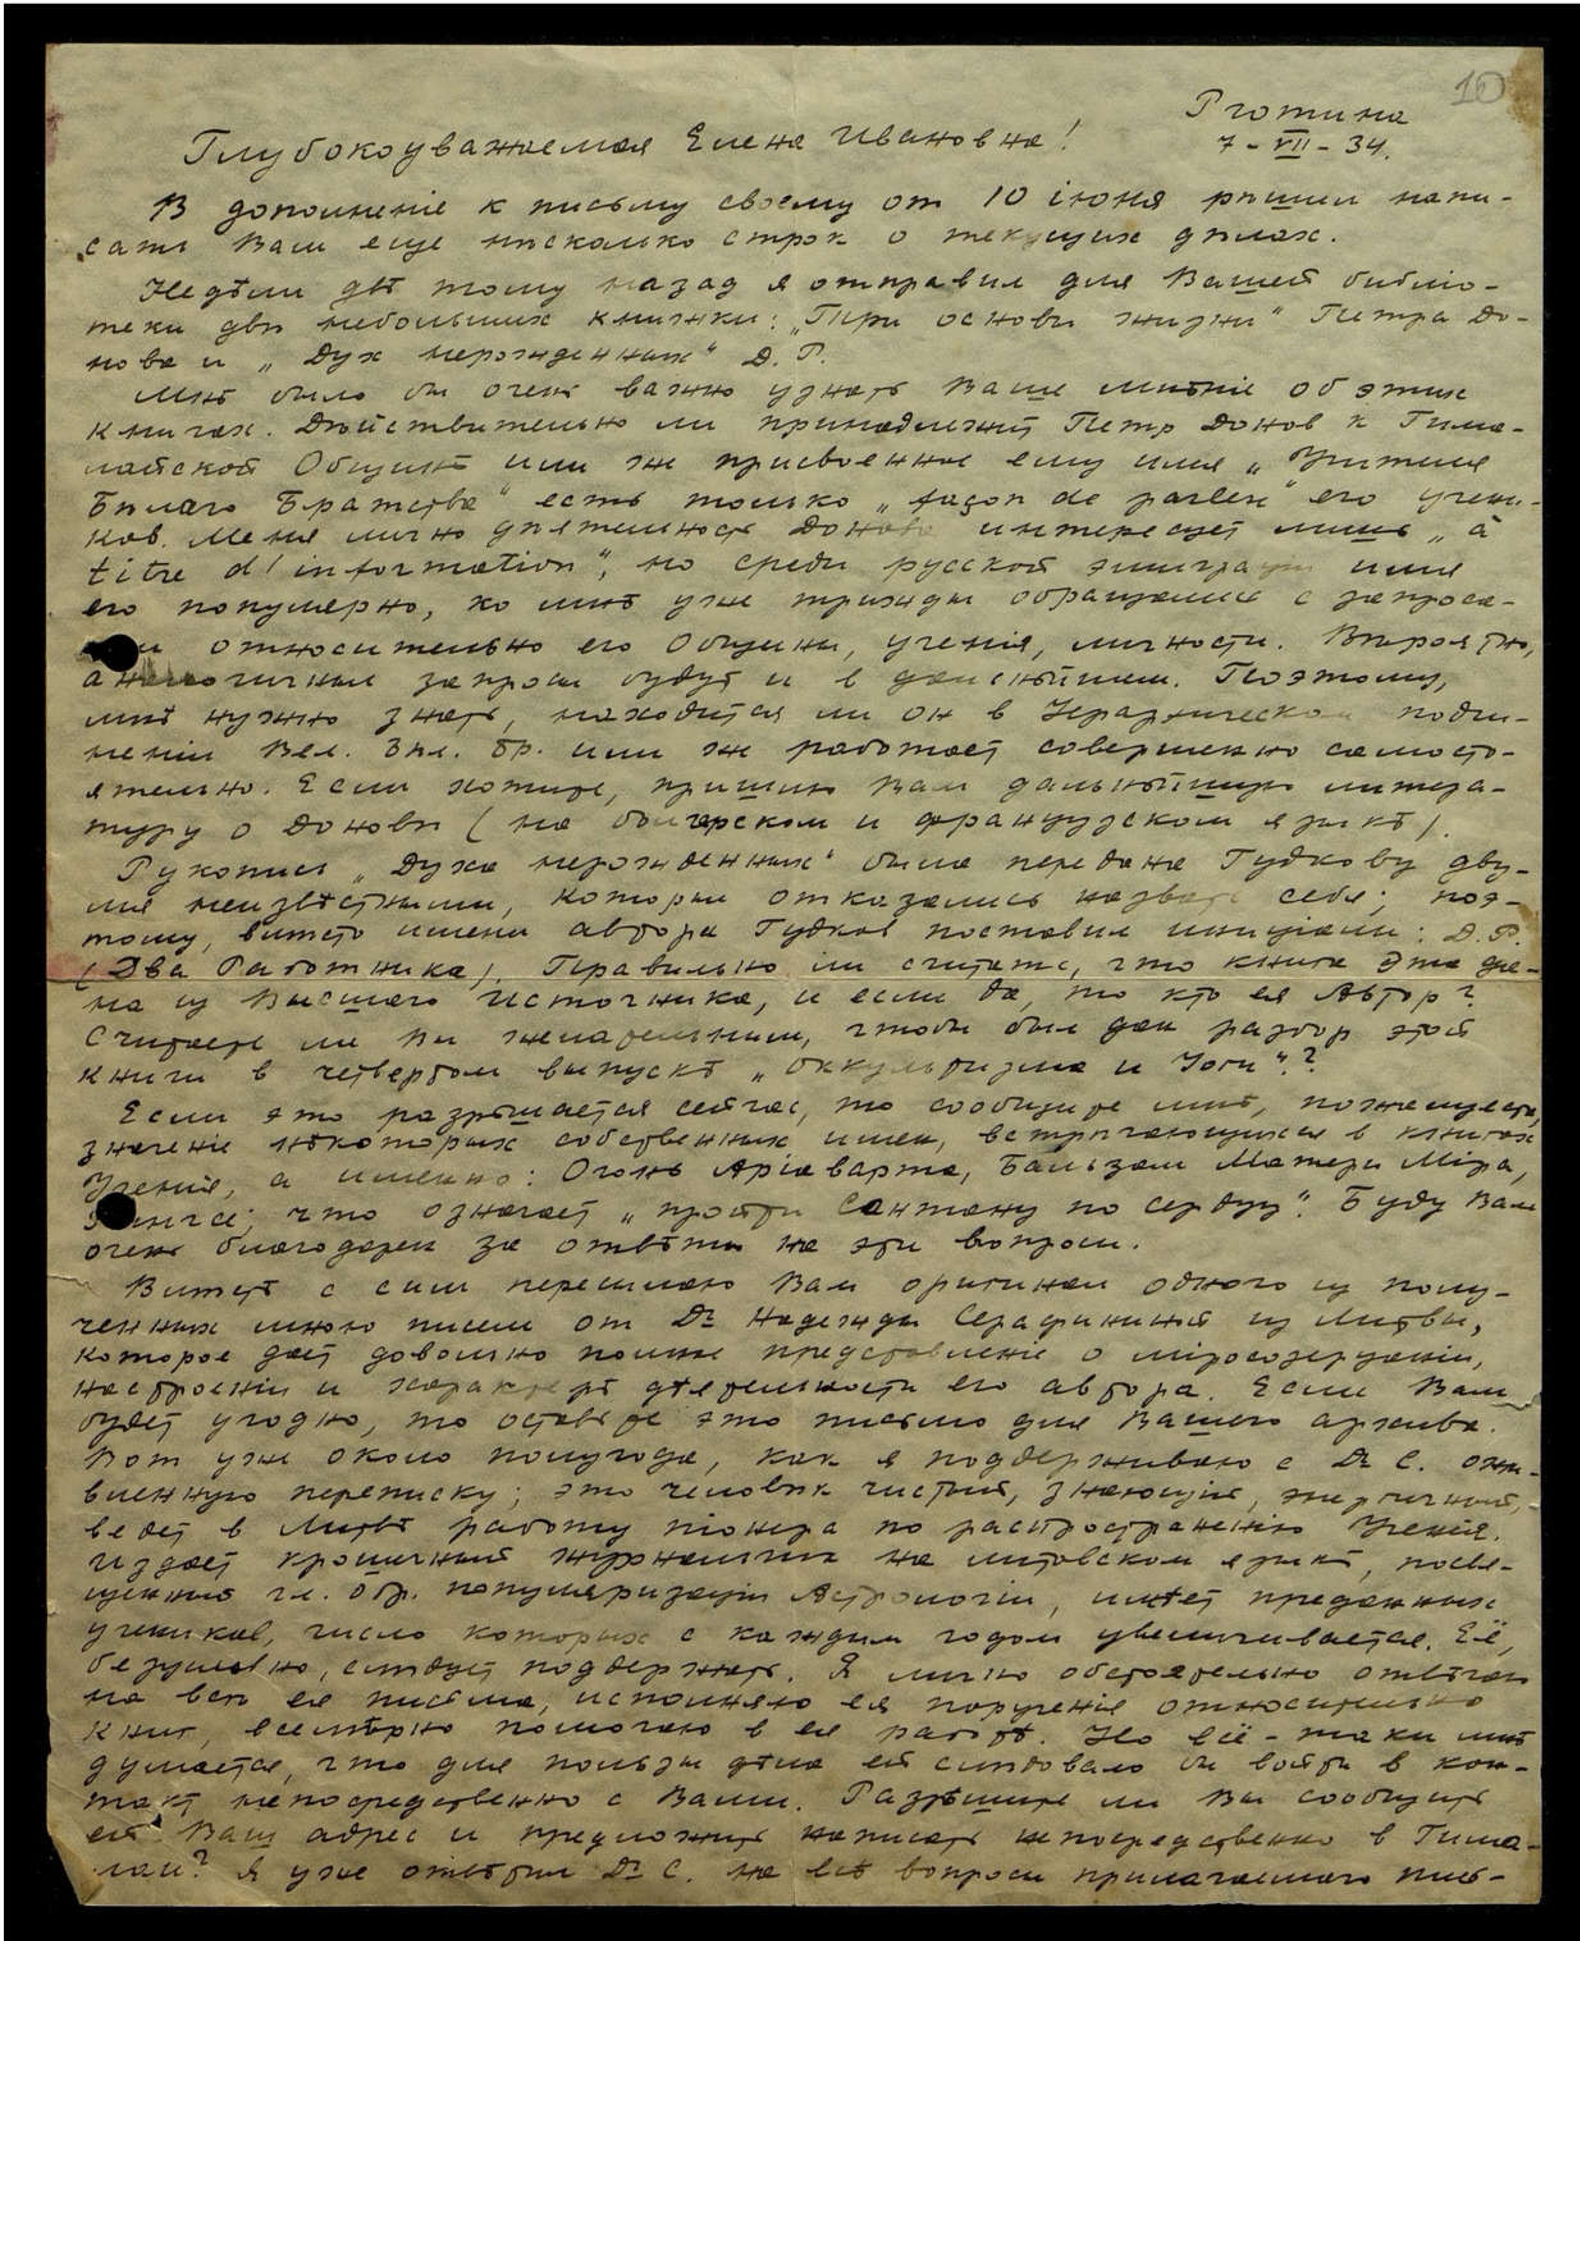 10
Рготина
Глубокоуважаемая Елена Ивановна!
7 - VII - 34.
В дополненіе к письму своему от 10 іюня рѣшил напи-
сать Вам еще нѣсколько строк о текущих дѣлах.
Недѣли двѣ тому назад я отправил для Вашей библіо-
теки двѣ небольших книжки: „Три основы жизни" Петра До-
нова и „Дух нерожденных" Д. Р.
Мнѣ было бы очень важно узнать Ваше мнѣніе об этих
книгах. Дѣйствительно ли принадлежит Петр Донов к Гима-
лайской Общинѣ или же присвоенное ему имя „Учителя
Бѣлаго Братства" есть только „façon de parler" его учени-
ков. Меня лично дѣятельность Донова интересует лишь „à
titre d'information", но среди русской эмиграціи имя
его популярно, ко мнѣ уже трижды обращались с запроса-
ми относительно его Общины, ученія, личности. Вѣроятно,
аналогичные запросы будут и в дальнѣйшем. Поэтому,
мнѣ нужно знать, находится ли он в Іерархическом подчи-
неніи Вел. Бѣл. Бр. или же работает совершенно самосто-
ятельно. Если хотите, пришлю Вам дальнѣйшую литера-
туру о Доновѣ (на болгарском и французском языкѣ).
Рукопись „Духа нерожденных" была передана Гудкову дву-
мя неизвѣстными, которые отказались назвать себя; поэ-
тому, вмѣсто имени автора Гудков поставил иниціалы: Д. Р.
(Два Работника). Правильно ли считать, что книга эта да-
на из Высшаго Источника, и если да, то кто ея Автор?
Считаете ли Вы желательным, чтобы был дан разбор этой
книги в четвертом выпускѣ „Оккультизма и Іоги"?
Если это разрѣшается сейчас, то сообщите мнѣ, пожалуйста,
значеніе нѣкоторых собственных имен, встрѣчающихся в книгах
Ученія, а именно: Огонь Аріаварта, Бальзам Матери Міра,
что означает „пройти Сантану по сердцу". Буду Вам
очень благодарен за отвѣты на эти вопросы.
Вмѣстѣ с сим пересылаю Вам оригинал одного из полу-
ченных мною писем от Dr Надежды Серафининой из Литвы,
которое дает довольно полное представленіе о міросозерцаніи,
настроеніи и характерѣ дѣятельности его автора. Если Вам
будет угодно, то оставьте это письмо для Вашего архива.
Вот уже около полугода, как я поддерживаю с Dr С. ожи-
вленную переписку; это человѣк чистый, знающій, энергичный,
ведет в Литвѣ работу піонера по распространенію Ученія.
Издает крошечный журнальчик на литовском языкѣ, посвя-
щенный гл. обр. популяризаціи Астрологіи, имѣет преданных
учеников, число которых с каждым годом увеличивается. Её,
безусловно, слѣдует поддержать. Я лично обстоятельно отвѣчаю
на всѣ ея письма, исполняю ея порученія относительно
книг, всемѣрно помогаю в ея работѣ. Но всё-таки мнѣ
думается, что для пользы дѣла ей слѣдовало бы войти в кон-
такт непосредственно с Вами. Разрѣшите ли Вы сообщить
ей Ваш адрес и предложить написать непосредственно в Гима-
лаи? Я уже отвѣтил Dr С. на всѣ вопросы прилагаемаго пись-